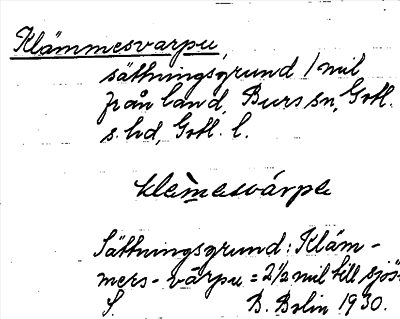 Klämmesvarpu,
sättningsgrund 1 mil
från land, Burs sn, Gotl.
s. hd, Gotl. l.
klèmesvárpe
Sättningsgrund: Kläm-
mers-värpu = 2½ mil till sjös
S. B. Bolin 1930.